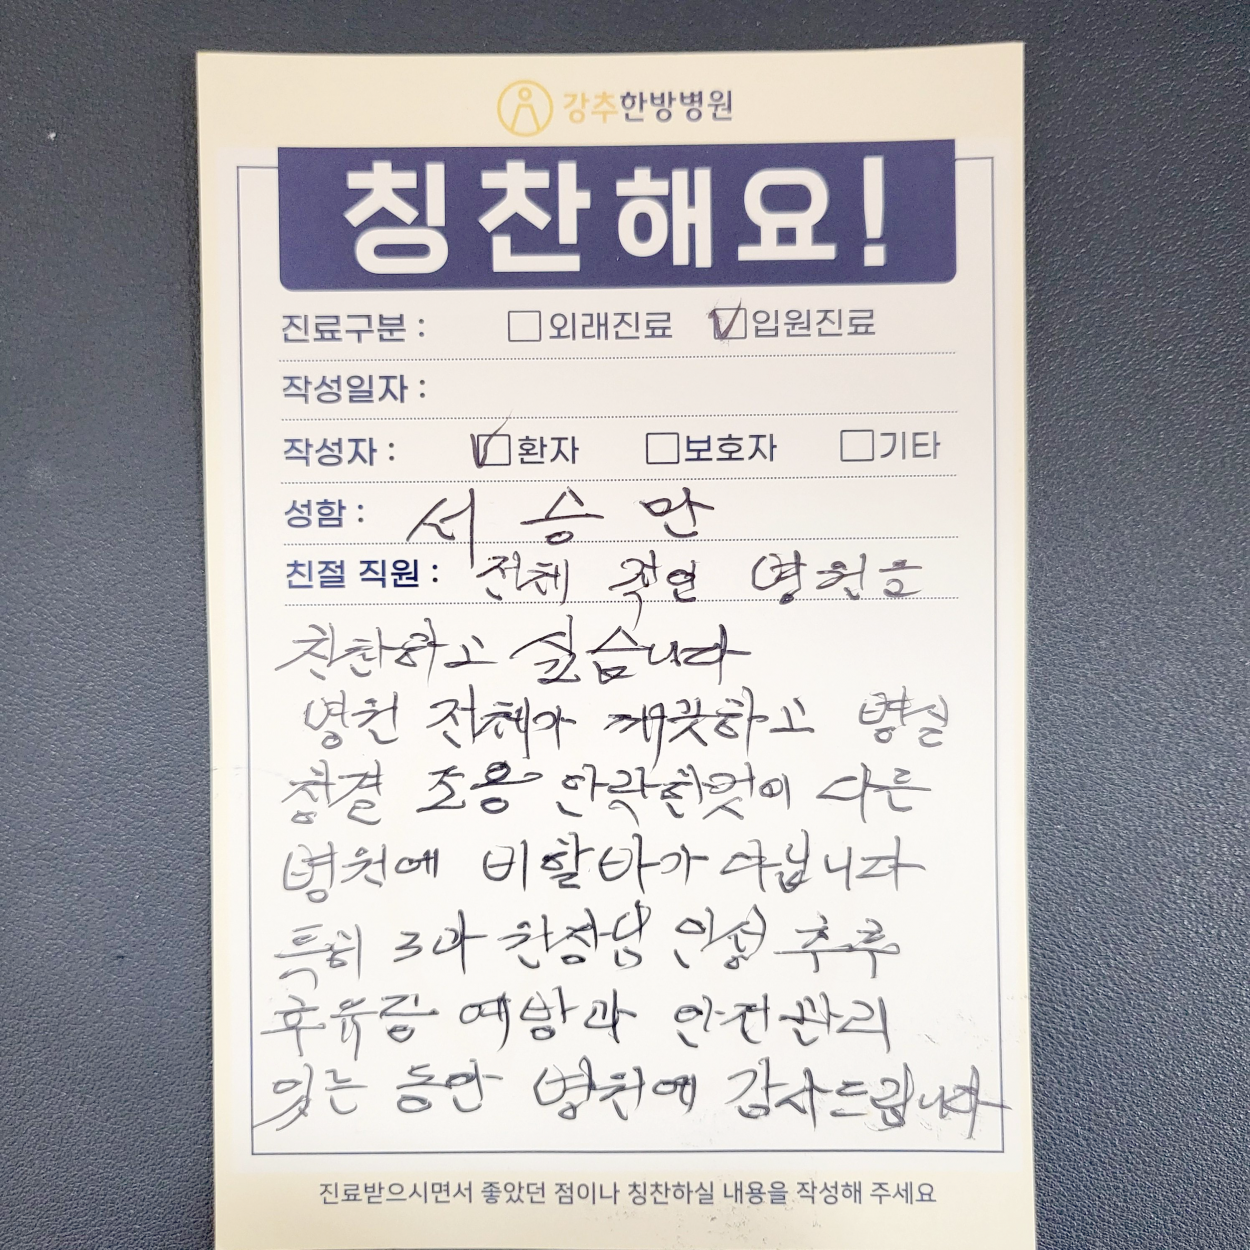 강추한방병원
칭찬해요!
진료구분 : 외래진료 입원진료
작성일자 :
작성자 : 환자 보호자 기타
성함 : 서승만
친절 직원 : 전체 직원 병원을
칭찬하고 싶습니다
병원 전체가 깨끗하고 병실
청결 조용 안락한것이 다른
병원에 비할바가 아닙니다
특히 3과 원장님 인성 추후
후유증 예방과 안전관리
있는 동안 병원에 감사드립니다
진료받으시면서 좋았던 점이나 칭찬하실 내용을 작성해 주세요